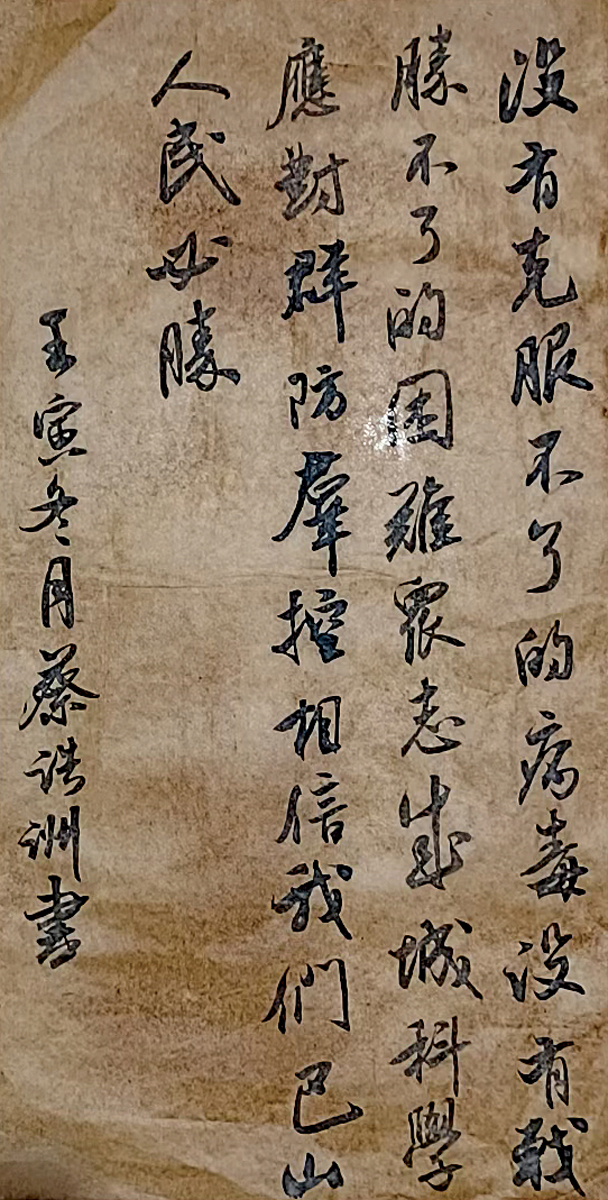 没有克服不了的病毒没有戰
勝不了的困難衆志成城科學
應對群防羣控相信我們巴山
人民必勝
壬寅冬月蔡诰洲書